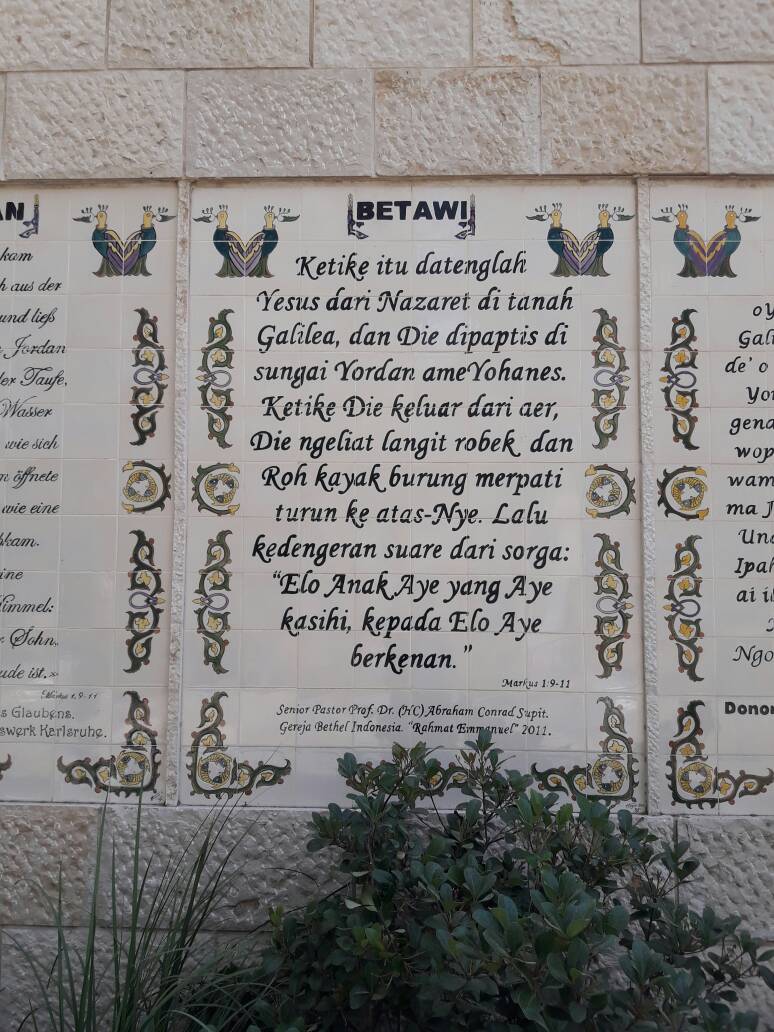 AN
kam
h aus der
und ließ
Jordan
der Taufe,
Wasser
wie sich
öffnete
wie eine
kam.
ine
Himmel:
Sohn,
ude ist.»
Markus 1,9-11
s Glaubens.
swerk Karlsruhe.
BETAWI
Ketike itu datenglah
Yesus dari Nazaret di tanah
Galilea, dan Die dipaptis di
sungai Yordan ameYohanes.
Ketike Die keluar dari aer,
Die ngeliat langit robek dan
Roh kayak burung merpati
turun ke atas-Nye. Lalu
kedengeran suare dari sorga:
“Elo Anak Aye yang Aye
kasihi, kepada Elo Aye
berkenan.”
Markus 1:9-11
Senior Pastor Prof. Dr. (HC) Abraham Conrad Supit.
Gereja Bethel Indonesia. "Rahmat Emmanuel" 2011.
oY
Gali
de' o
Yo
gena
wop
wam
ma J
Un
Ipah
ai il
Ngo
Dono